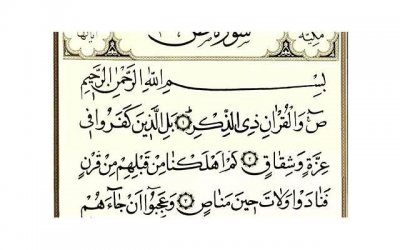 سورة ص
مكية
آياتها
بِسْمِ اللّٰهِ الرَّحْمٰنِ الرَّحِيمِ
صٓ وَالْقُرْاٰنِ ذِي الذِّكْرِ ١ بَلِ الَّذِينَ كَفَرُوا فِي
عِزَّةٍ وَشِقَاقٍ ٢ كَمْ اَهْلَكْنَا مِنْ قَبْلِهِمْ مِنْ قَرْنٍ
فَنَادَوْا وَلَاتَ حِينَ مَنَاصٍ ٣ وَعَجِبُٓوا اَنْ جَٓاءَهُمْ